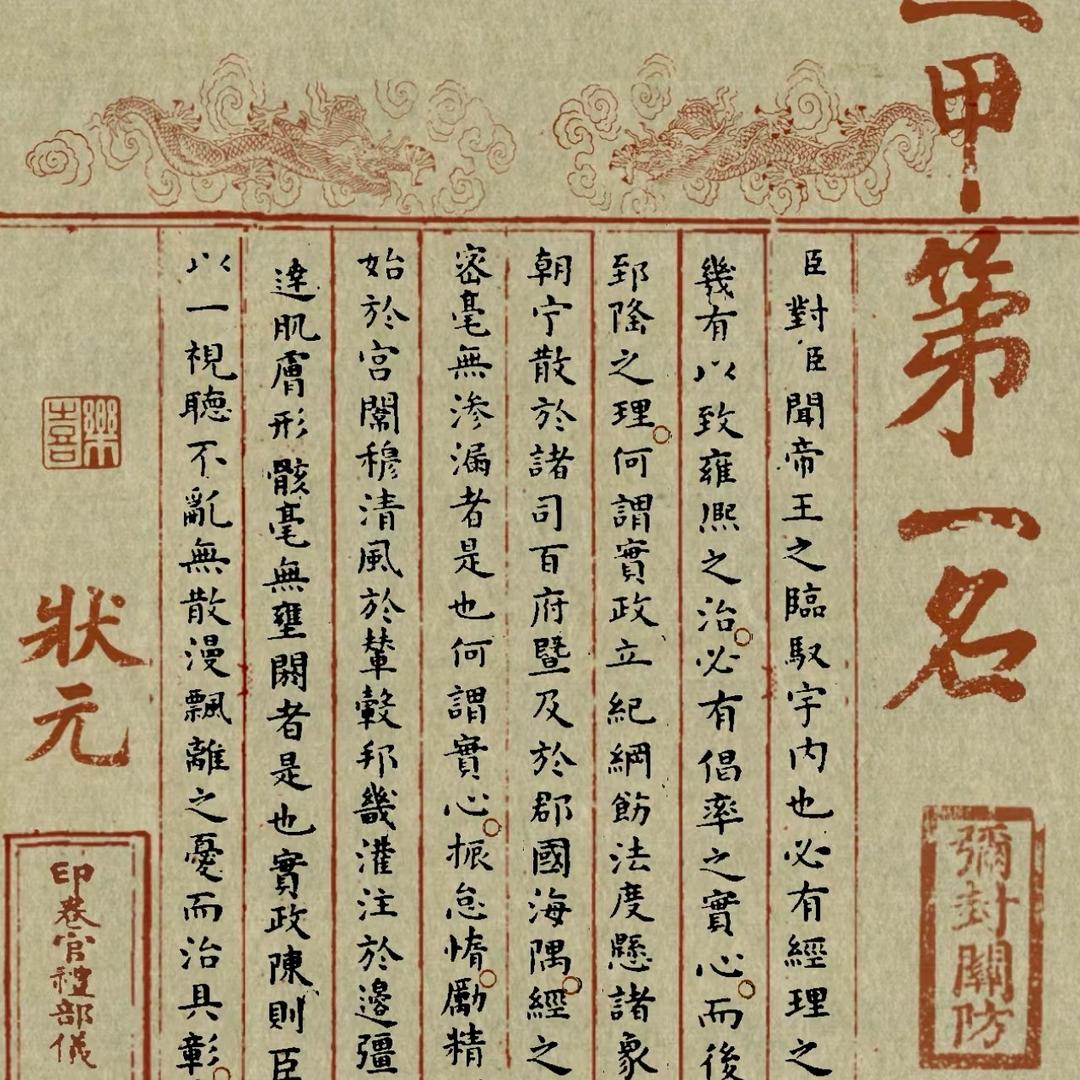 一甲第一名
彌封關防
臣對臣聞帝王之臨馭宇內也必有經理之
幾有以致雍熙之治必有倡率之實心而後
郅隆之理何謂實政立紀綱飭法度懸諸象
朝宁散於諸司百府暨及於郡國海隅經之
密毫無滲漏者是也何謂實心振怠惰勵精
始於宮闈穆清風於輦轂邦畿灌注於邊疆
達肌膚形骸毫無壅閼者是也實政陳則臣
以一視聽不亂無散漫飄離之憂而治具彰
喜樂
狀元
印卷官禮部儀